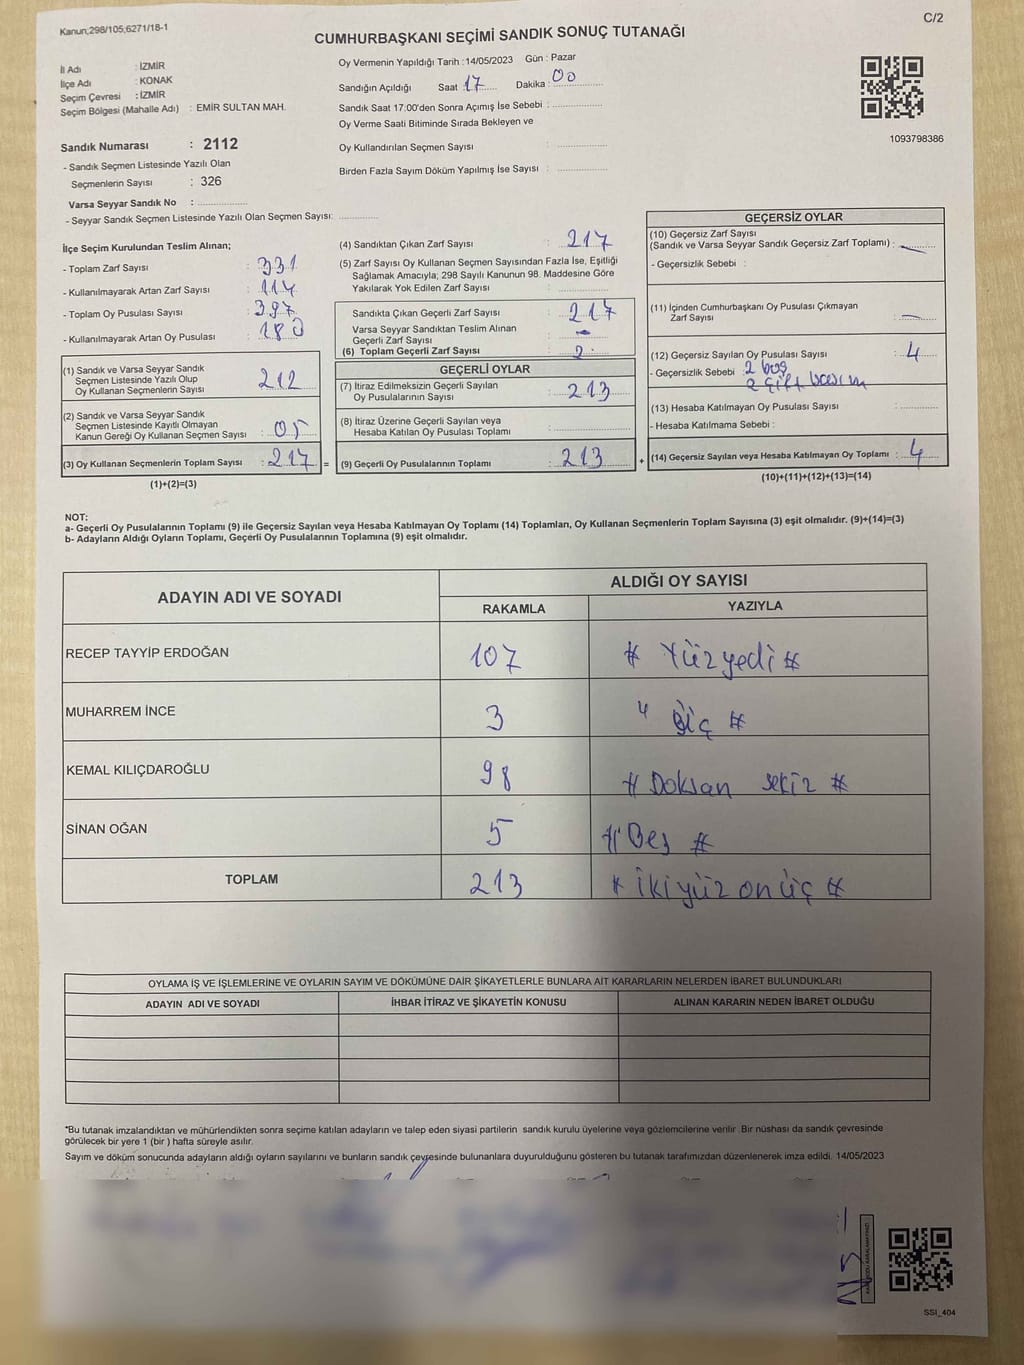 Kanun;298/105;6271/18-1
C/2
CUMHURBAŞKANI SEÇİMİ SANDIK SONUÇ TUTANAĞI
İl Adı : İZMİR
İlçe Adı : KONAK
Seçim Çevresi : İZMİR
Seçim Bölgesi (Mahalle Adı) : EMİR SULTAN MAH.
Sandık Numarası : 2112
- Sandık Seçmen Listesinde Yazılı Olan
Seçmenlerin Sayısı : 326
Varsa Seyyar Sandık No :
- Seyyar Sandık Seçmen Listesinde Yazılı Olan Seçmen Sayısı:
Oy Vermenin Yapıldığı Tarih :14/05/2023 Gün : Pazar
Sandığın Açıldığı Saat :17 Dakika :00
Sandık Saat 17:00'den Sonra Açımış İse Sebebi :
Oy Verme Saati Bitiminde Sırada Bekleyen ve
Oy Kullandırılan Seçmen Sayısı :
Birden Fazla Sayım Döküm Yapılmış İse Sayısı :
1093798386
İlçe Seçim Kurulundan Teslim Alınan;
- Toplam Zarf Sayısı : 331
- Kullanılmayarak Artan Zarf Sayısı : 114
- Toplam Oy Pusulası Sayısı : 397
- Kullanılmayarak Artan Oy Pusulası : 180
(1) Sandık ve Varsa Seyyar Sandık
Seçmen Listesinde Yazılı Olup
Oy Kullanan Seçmenlerin Sayısı : 212
(2) Sandık ve Varsa Seyyar Sandık
Seçmen Listesinde Kayıtlı Olmayan
Kanun Gereği Oy Kullanan Seçmen Sayısı : 05
(3) Oy Kullanan Seçmenlerin Toplam Sayısı : 217 =
(1)+(2)=(3)
(4) Sandıktan Çıkan Zarf Sayısı : 217
(5) Zarf Sayısı Oy Kullanan Seçmen Sayısından Fazla İse, Eşitliği
Sağlamak Amacıyla; 298 Sayılı Kanunun 98. Maddesine Göre
Yakılarak Yok Edilen Zarf Sayısı :
Sandıkta Çıkan Geçerli Zarf Sayısı : 217
Varsa Seyyar Sandıktan Teslim Alınan
Geçerli Zarf Sayısı : -
(6) Toplam Geçerli Zarf Sayısı : 2
GEÇERLİ OYLAR
(7) İtiraz Edilmeksizin Geçerli Sayılan
Oy Pusulalarının Sayısı : 213
(8) İtiraz Üzerine Geçerli Sayılan veya
Hesaba Katılan Oy Pusulası Toplamı :
(9) Geçerli Oy Pusulalarının Toplamı : 213 +
GEÇERSİZ OYLAR
(10) Geçersiz Zarf Sayısı
(Sandık ve Varsa Seyyar Sandık Geçersiz Zarf Toplamı) : -
- Geçersizlik Sebebi :
(11) İçinden Cumhurbaşkanı Oy Pusulası Çıkmayan
Zarf Sayısı : -
(12) Geçersiz Sayılan Oy Pusulası Sayısı : 4
- Geçersizlik Sebebi : 2 boş
2 çift basım
(13) Hesaba Katılmayan Oy Pusulası Sayısı :
- Hesaba Katılmama Sebebi :
(14) Geçersiz Sayılan veya Hesaba Katılmayan Oy Toplamı : 4
(10)+(11)+(12)+(13)=(14)
NOT:
a- Geçerli Oy Pusulalarının Toplamı (9) ile Geçersiz Sayılan veya Hesaba Katılmayan Oy Toplamı (14) Toplamları, Oy Kullanan Seçmenlerin Toplam Sayısına (3) eşit olmalıdır. (9)+(14)=(3)
b- Adayların Aldığı Oyların Toplamı, Geçerli Oy Pusulalarının Toplamına (9) eşit olmalıdır.
ADAYIN ADI VE SOYADI
ALDIĞI OY SAYISI
RAKAMLA YAZIYLA
RECEP TAYYİP ERDOĞAN 107 # Yüz yedi #
MUHARREM İNCE 3 # üç #
KEMAL KILIÇDAROĞLU 98 # Doksan sekiz #
SİNAN OĞAN 5 # Beş #
TOPLAM 213 # iki yüz on üç #
OYLAMA İŞ VE İŞLEMLERİNE VE OYLARIN SAYIM VE DÖKÜMÜNE DAİR ŞİKAYETLERLE BUNLARA AİT KARARLARIN NELERDEN İBARET BULUNDUKLARI
ADAYIN ADI VE SOYADI İHBAR İTİRAZ VE ŞİKAYETİN KONUSU ALINAN KARARIN NEDEN İBARET OLDUĞU
*Bu tutanak imzalandıktan ve mühürlendikten sonra seçime katılan adayların ve talep eden siyasi partilerin sandık kurulu üyelerine veya gözlemcilerine verilir. Bir nüshası da sandık çevresinde
görülecek bir yere 1 (bir ) hafta süreyle asılır.
Sayım ve döküm sonucunda adayların aldığı oyların sayılarını ve bunların sandık çevresinde bulunanlara duyurulduğunu gösteren bu tutanak tarafımızdan düzenlenerek imza edildi. 14/05/2023
SSI_404